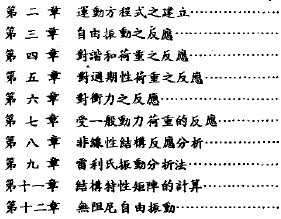 第二章 運動方程式之建立⋯⋯⋯⋯⋯⋯
第三章 自由振動之反應⋯⋯⋯⋯⋯⋯
第四章 對諧和荷重之反應⋯⋯⋯⋯⋯⋯
第五章 對週期性荷重之反應⋯⋯⋯⋯⋯⋯
第六章 對衝力之反應⋯⋯⋯⋯⋯⋯
第七章 受一般動力荷重的反應⋯⋯⋯⋯⋯⋯
第八章 非線性結構反應分析⋯⋯⋯⋯⋯⋯
第九章 雷利氏振動分析法⋯⋯⋯⋯⋯⋯
第十一章 結構特性矩陣的計算⋯⋯⋯⋯⋯⋯
第十二章 無阻尼自由振動⋯⋯⋯⋯⋯⋯